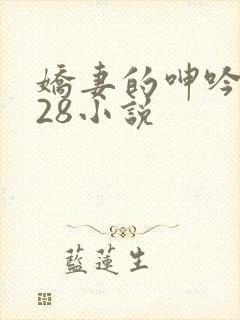 嬌妻的呻吟
28小說
藍蓮生